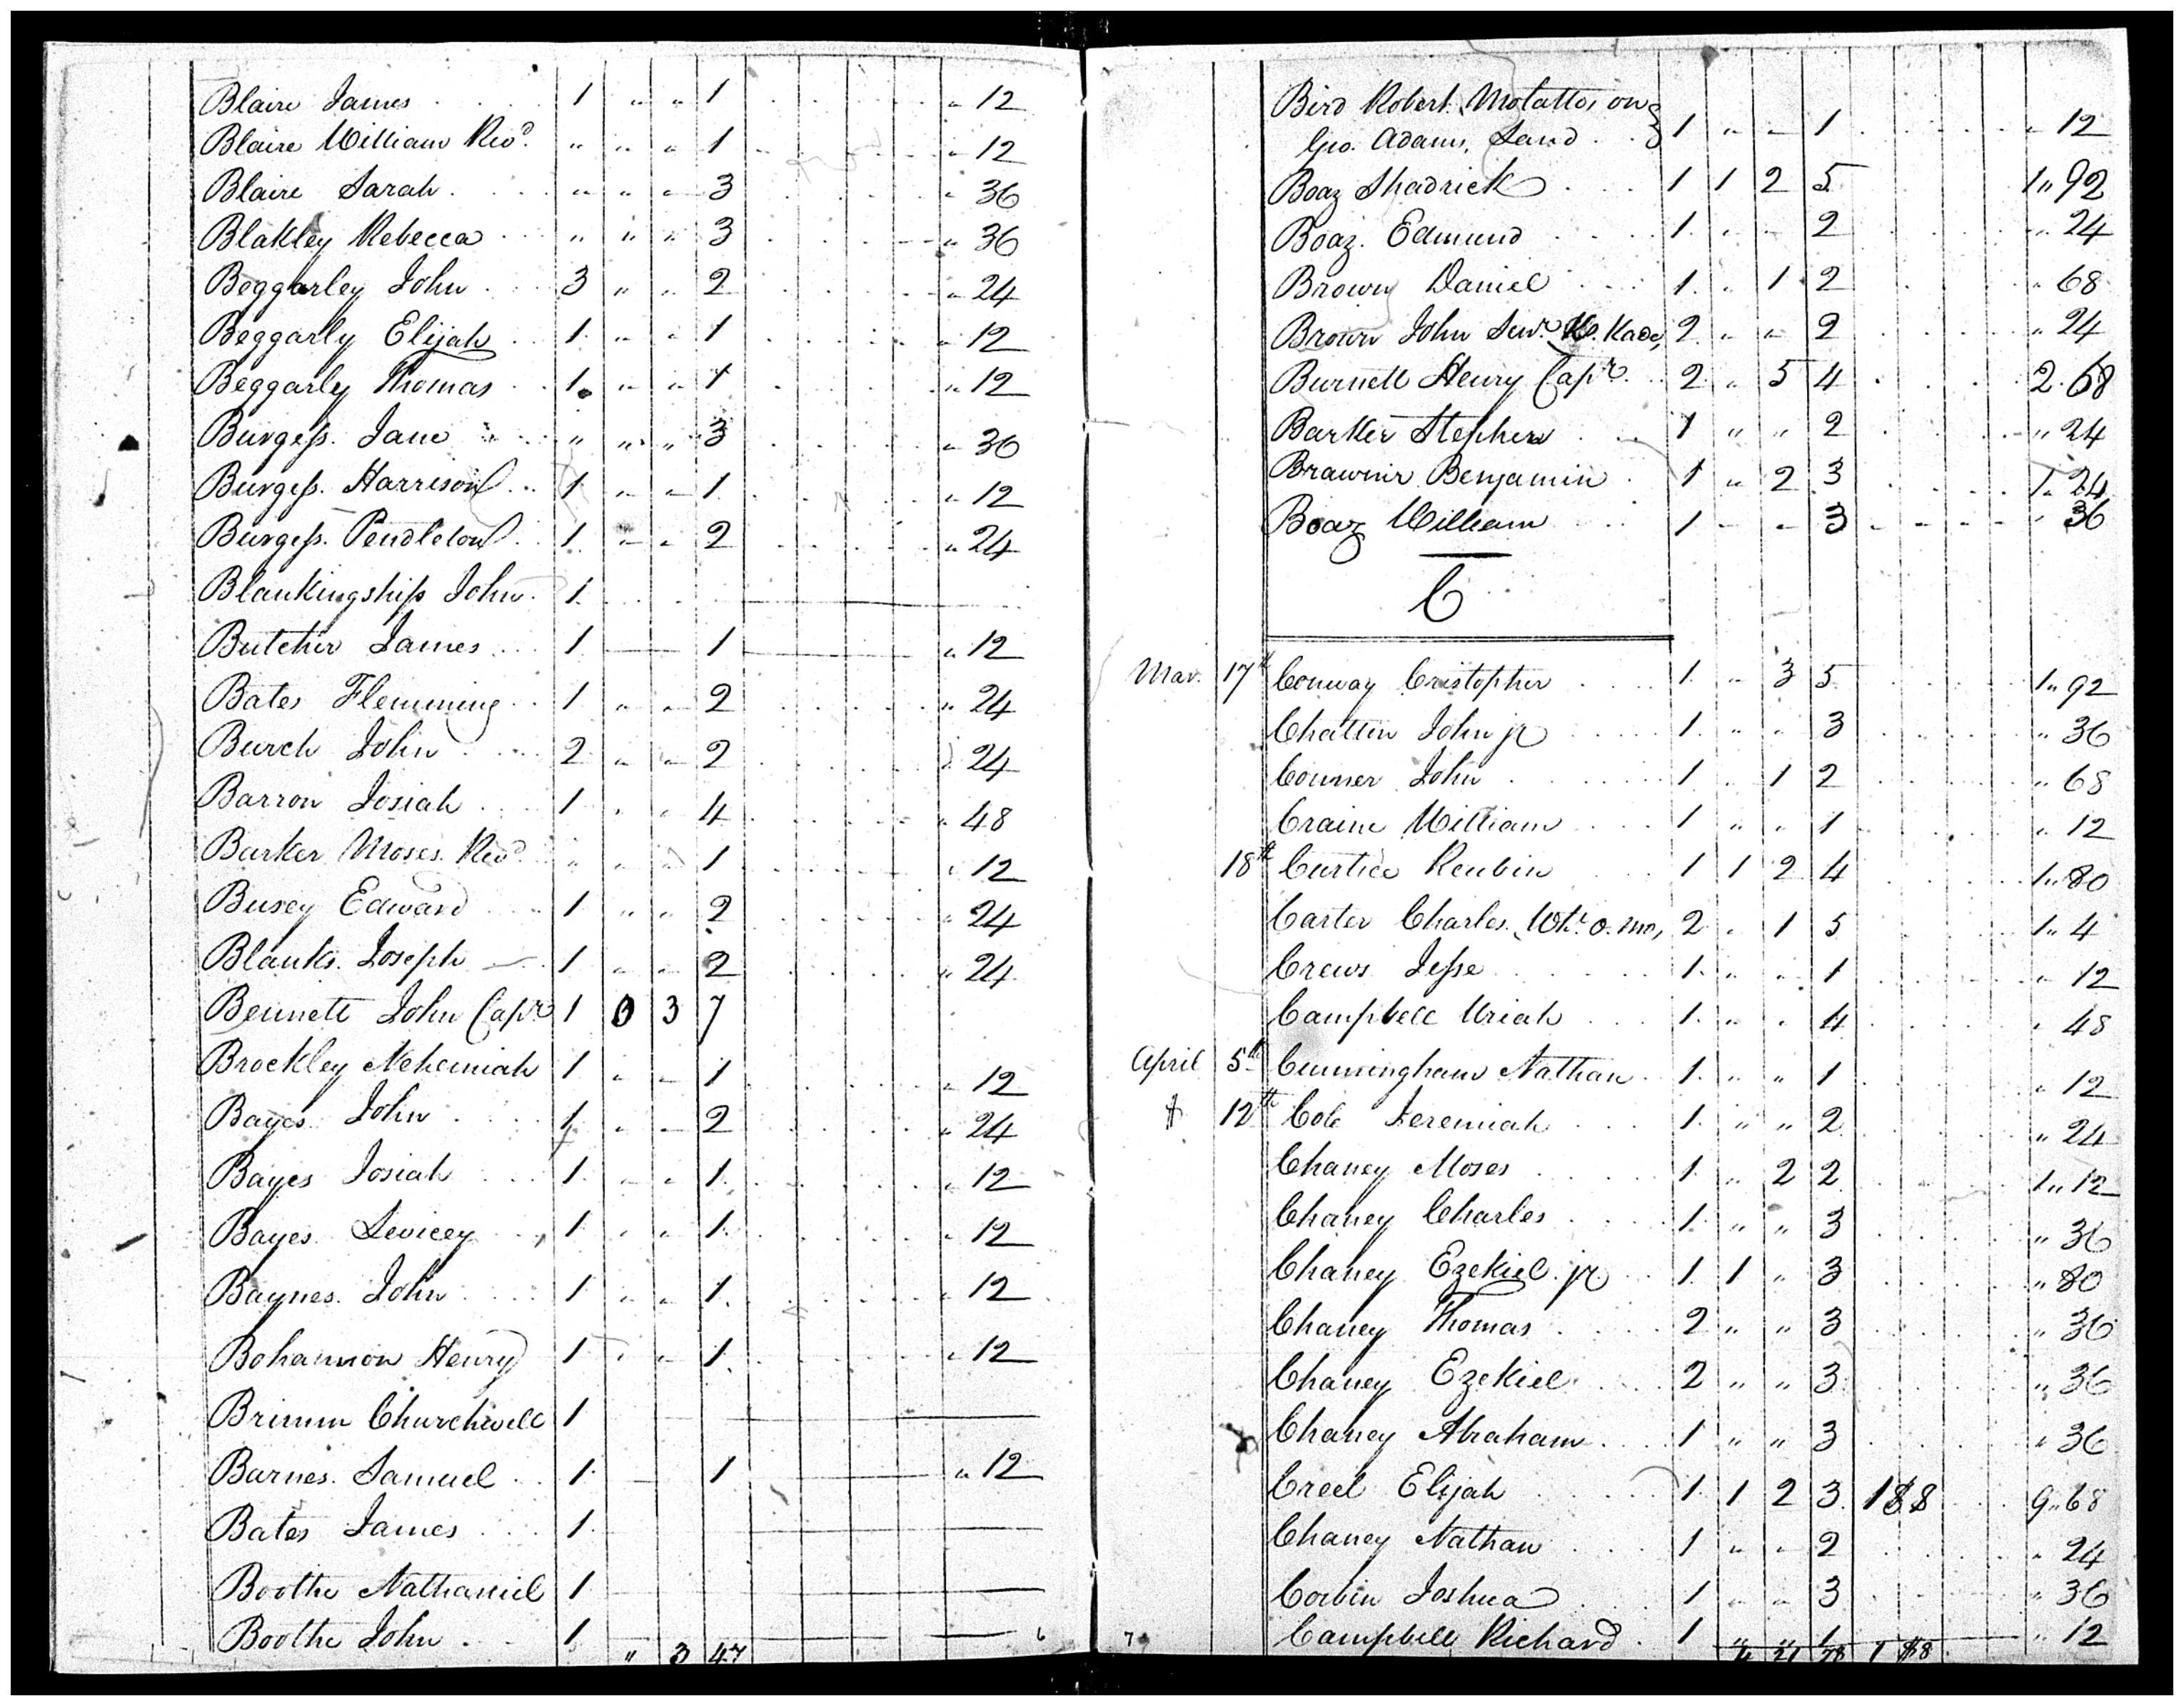 Blaire James 1 " " 1 " 12
Blaire William Revd. " " " 1 " 12
Blaire Sarah " " " 3 " 36
Blakley Rebecca " " " 3 " 36
Beggarley John 3 " " 2 " 24
Beggarly Elijah 1 " " 1 " 12
Beggarly Thomas 1 " " 1 " 12
Burgess Jane " " " 3 " 36
Burgess Harrison 1 " " 1 " 12
Burgess Pendleton 1 " " 2 " 24
Blankingship John 1
Butcher James 1 1 " 12
Bates Flemming 1 " " 2 " 24
Burch John 2 " " 2 " 24
Barron Josiah 1 " " 4 " 48
Barker Moses Revd. " " " 1 " 12
Busey Edward 1 " " 2 " 24
Blanks Joseph 1 " " 2 " 24
Bennett John Capt. 1 0 3 7
Brockley Nehemiah 1 " " 1 " 12
Bayes John 1 " " 2 " 24
Bayes Josiah 1 " " 1 " 12
Bayes Levicey 1 " " 1 " 12
Baynes John 1 " " 1 " 12
Bohannon Henry 1 " " 1 " 12
Brimm Churchwell 1
Barnes Samuel 1 1 " 12
Bates James 1
Boothe Nathaniel 1
Boothe John 1
" 3 47
6
Bird Robert Molatto, on
Geo. Adams, Land 1 " " 1 " 12
Boaz Shadrick 1 1 2 5 1" 92
Boaz Edmund 1 " " 2 " 24
Brown Daniel 1 " 1 2 " 68
Brown John Senr. 2 " " 2 " 24
Burnett Henry Capt. 2 " 5 4 2. 68
Barker Stephen 1 " " 2 " 24
Brawner Benjamin 1 " 2 3 1" 24
Boaz William 1 " " 3 " 36
C
Mar. 17th Conway Cristopher 1 " 3 5 1" 92
Chattin John jr 1 " " 3 " 36
Conner John 1 " 1 2 " 68
Craine William 1 " " 1 " 12
18th Curtice Reubin 1 1 2 4 1" 80
Carter Charles Wht. o. mn, 2 " 1 5 1" 4
Crews Jesse 1 " " 1 " 12
Campbell Uriah 1 " " 4 " 48
April 5th Cunningham Nathan 1 " " 1 " 12
12th Cole Jeremiah 1 " " 2 " 24
Chaney Moses 1 " 2 2 1" 12
Chaney Charles 1 " " 3 " 36
Chaney Ezekiel jr 1 1 " 3 " 80
Chaney Thomas 2 " " 3 " 36
Chaney Ezekiel 2 " " 3 " 36
Chaney Abraham 1 " " 3 " 36
Creel Elijah 1 1 2 3 1 $8 9" 68
Chaney Nathan 1 " " 2 " 24
Corbin Joshua 1 " " 3 " 36
Campbell Richard 1 " " 1 " 12
7
4 21 78 1 $8